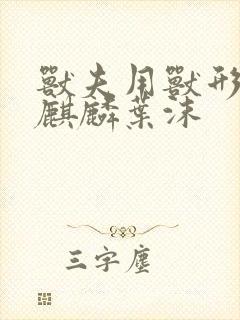 獸夫用獸形
麒麟葉沫
三字塵